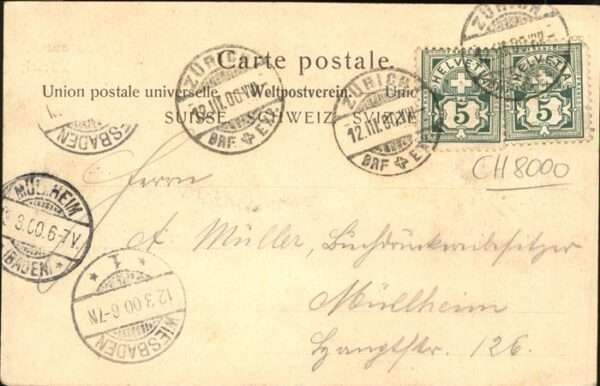 Carte postale.
Union postale universelle. – Weltpostverein. – Unio
SUISSE. SCHWEIZ. SVIZZERA
ZÜRICH
12.III.00.
BRF. EXP.
ZÜRICH
12.III.00.
BRF. EXP.
ZÜRICH
HELVETIA
5
HELVETIA
5
CH 8000
WIESBADEN
MÜLLHEIM
3.00.6-7V.
(BADEN)
1
12.3.00.6-7N
WIESBADEN
Herrn
A. Müller, Buchdruckereibesitzer
Müllheim
Hauptstr. 126.